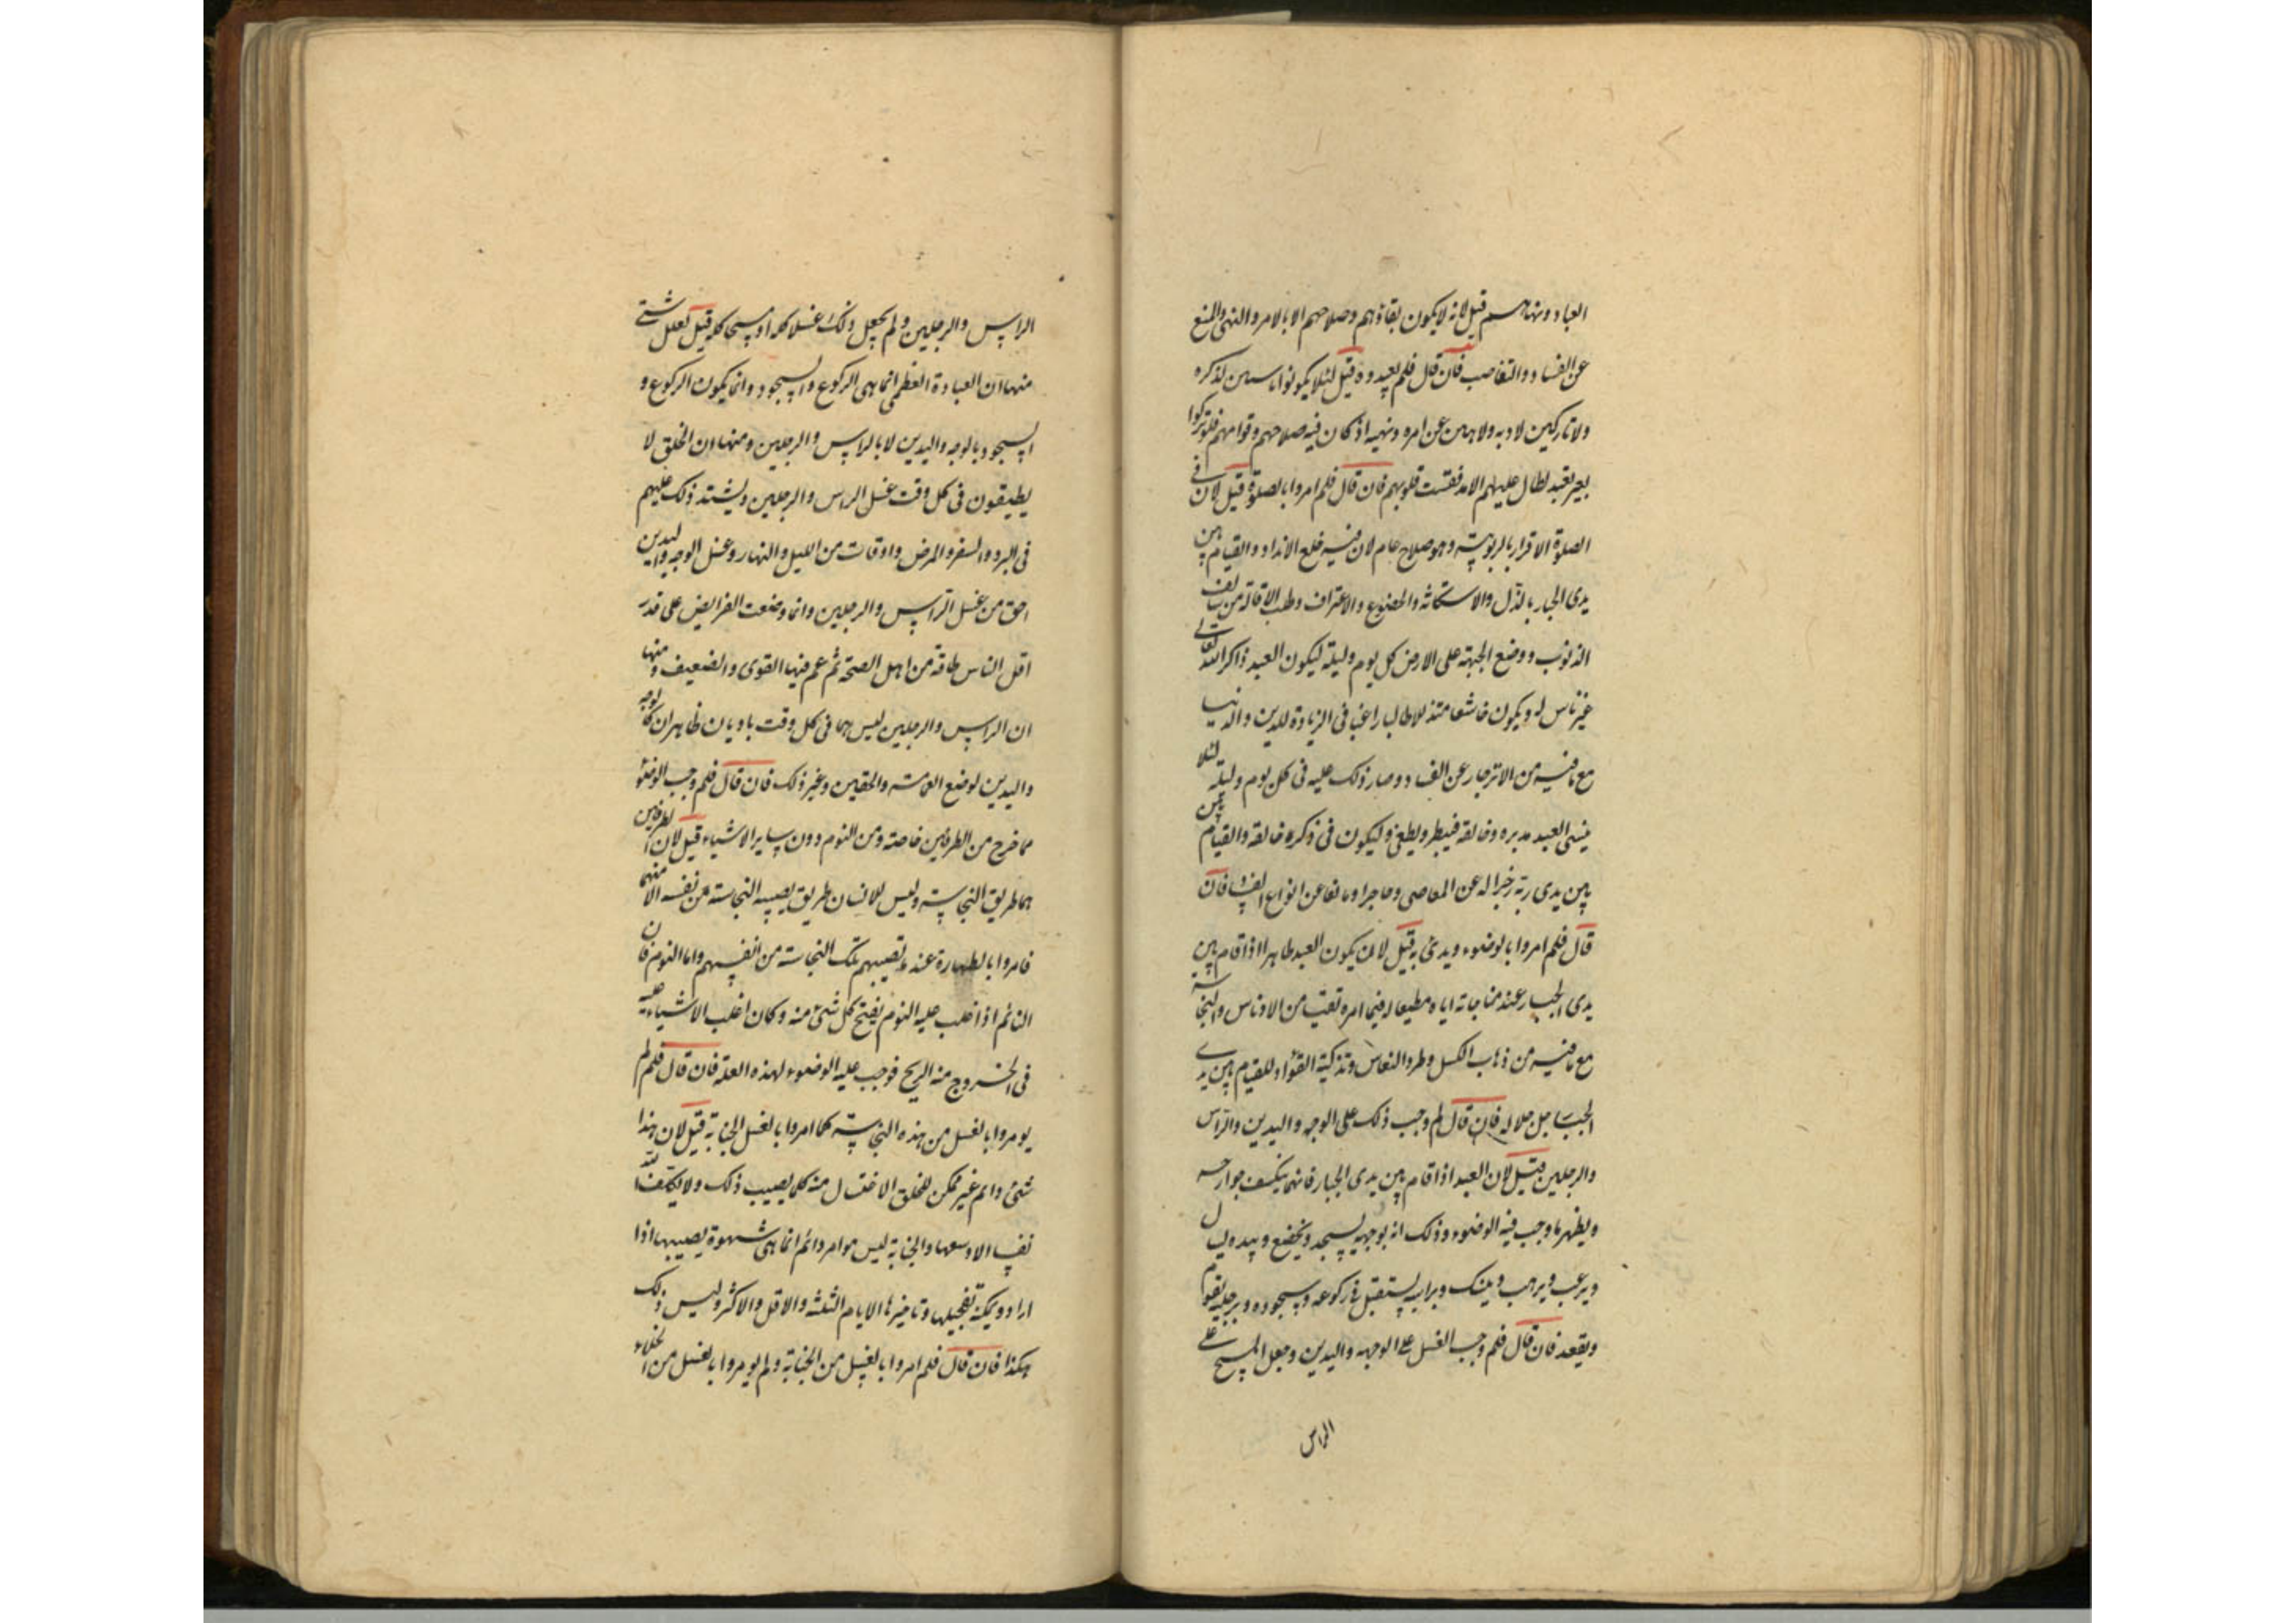 العباد ونهاهم قيل لانه لا يكون بقاؤهم وصلاحهم الا بالامر والنهي والمنع
عن الفساد والتغاصب فان قال فلم تعبدوه قيل لئلا يكونوا ناسين لذكره
ولا تاركين لادبه ولا لاهين عن امره ونهيه اذ كان فيه صلاحهم وقوامهم فلو تركوا
بغير تعبد لطال عليهم الامد فقست قلوبهم فان قال فلم امروا بالصلوة قيل لان في
الصلوة الاقرار بالربوبية وهو صلاح عام لان فيه خلع الانداد والقيام بين
يدى الجبار بالذل والاستكانة والخضوع والاعتراف وطلب الاقالة من سالف
الذنوب ووضع الجبهة على الارض كل يوم وليلة ليكون العبد ذاكرا لله تعالى
غير ناس له ويكون خاشعا متذللا طالبا راغبا في الزيادة للدين والدنيا
مع ما فيه من الانزجار عن الفساد وصار ذلك عليه في كل يوم وليلة لئلا
ينسى العبد مدبره وخالقه فيبطر ويطغى وليكون في ذكره خالقه والقيام
بين يدى ربه زجرا له عن المعاصى وحاجزا ومانعا عن انواع الفساد فان
قال فلم امروا بالوضوء وبدئ به قيل لان يكون العبد طاهرا اذا قام بين
يدى الجبار عند مناجاته اياه مطيعا له فيما امره نقيا من الادناس والنجاسة
مع ما فيه من ذهاب الكسل وطرد النعاس وتذكية الفؤاد للقيام بين يدى
الجبار جل جلاله فان قال لم وجب ذلك على الوجه واليدين والراس
والرجلين قيل لان العبد اذا قام بين يدى الجبار فانما ينكشف جوارحه
ويظهر ما وجب فيه الوضوء وذلك انه بوجهه يسجد ويخضع وبيده يسال
ويرغب ويرهب وينسك وبراسه يستقبل في ركوعه وسجوده وبرجليه يقوم
ويقعد فان قال فلم وجب الغسل على الوجه واليدين وجعل المسح على
الراس
الراس والرجلين ولم يجعل ذلك غسلا كله او مسحا كله قيل لعلل شتى
منها ان العبادة العظمى انما هى الركوع والسجود وانما يكون الركوع و
السجود بالوجه واليدين لا بالراس والرجلين ومنها ان الخلق لا
يطيقون في كل وقت غسل الراس والرجلين ويشتد ذلك عليهم
في البرد والسفر والمرض واوقات من الليل والنهار وغسل الوجه واليدين
احق من غسل الراس والرجلين وانما وضعت الفرايض على قدر
اقل الناس طاقة من اهل الصحة ثم عم فيها القوى والضعيف ومنها
ان الراس والرجلين ليس هما في كل وقت باديان ظاهران كالوجه
واليدين لوضع العمامة والخفين وغير ذلك فان قال فلم وجب الوضوء
مما خرج من الطرفين خاصة ومن النوم دون ساير الاشياء قيل لان الطرفين
هما طريق النجاسة وليس للانسان طريق يصيبه النجاسة من نفسه الا منهما
فامروا بالطهارة عندما تصيبهم تلك النجاسة من انفسهم واما النوم فان
النائم اذا غلب عليه النوم يفتح كل شئ منه وكان اغلب الاشياء عليه
في الخروج منه الريح فوجب عليه الوضوء لهذه العلة فان قال فلم لم
يومروا بالغسل من هذه النجاسة كما امروا بالغسل الجنابة قيل لان هذا
شئ دائم غير ممكن للخلق الاغتسال منه كلما يصيب ذلك ولا يكلف الله
نفسا الا وسعها والجنابة ليس هو امر دائم انما هى شهوة يصيبها اذا
اراد ويمكنه تعجيلها وتاخيرها الايام الثلثة والاقل والاكثر وليس ذلك
هكذا فان قال فلم امروا بالغسل من الجنابة ولم يومروا بالغسل من الخلاء